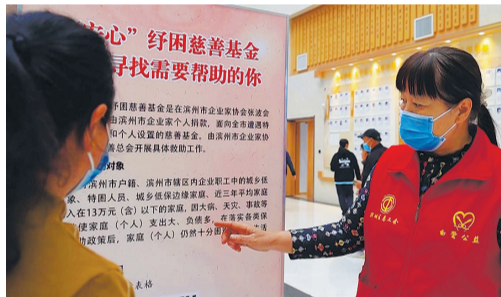 心”纾困慈善基金
寻找需要帮助的你
纾困慈善基金是在滨州市企业家协会张波会
由滨州市企业家个人捐款，面向全市遭遇特
和个人设置的慈善基金。由滨州市企业家协
善总会开展具体救助工作。
对象
滨州市户籍、滨州市辖区内企业职工中的城乡低
象、特困人员、城乡低保边缘家庭、近三年平均家庭
入在13万元（含）以下的家庭，因大病、天灾、事故等
使家庭（个人）支出大、负债多，在落实各类保
助政策后，家庭（个人）仍然十分困
活
表格
公益